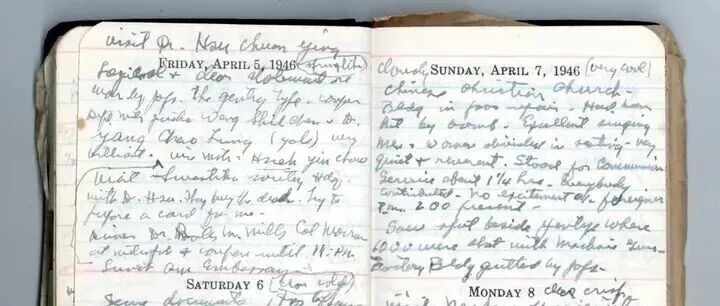 visit Dr. Hsu Chuan Ying
FRIDAY, APRIL 5, 1946 (springlike)
Logical + clear statement re
war by japs. The gentry type. Cooper
Wang
Yang Chao Lung (Yale) very
brilliant. Hsiah Yin Chow
Visit Swastika society Hdq.
with Dr. Hsu. They bury the dead. Try to
a card for me.
Dinner Dr. Mills Col
at and confers until 11 P.M.
Embassy
SATURDAY 6
Some documents
Cloudy SUNDAY, APRIL 7, 1946 (very cool)
Chinese Christian Church -
Bldg in poor repair. Had been
hit by bomb. Excellent singing
Men + women divided in seating - very
quiet + reverent. Stood for Communion
Service about 1 1/4 hrs. Everybody
contributed. No excitement at foreigner
200 present
Saw spot beside Yangtze where
1000 were shot with machine guns -
Factory Bldg gutted by japs.
MONDAY 8 clear crisp
visit